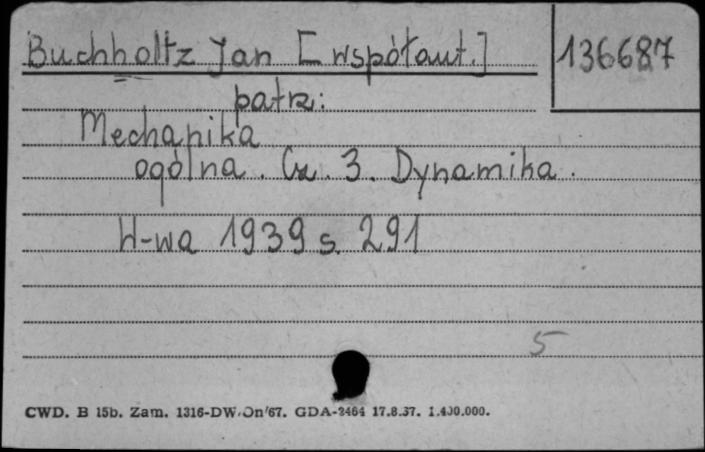 Buchholtz Jan [współaut.]
136687
patrz:
Mechanika
ogólna. Cz. 3. Dynamika.
W-wa 1939 s. 291
5
CWD. B 15b. Zam. 1316-DW/Dn/67. GDA-2464 17.8.67. 1.400.000.